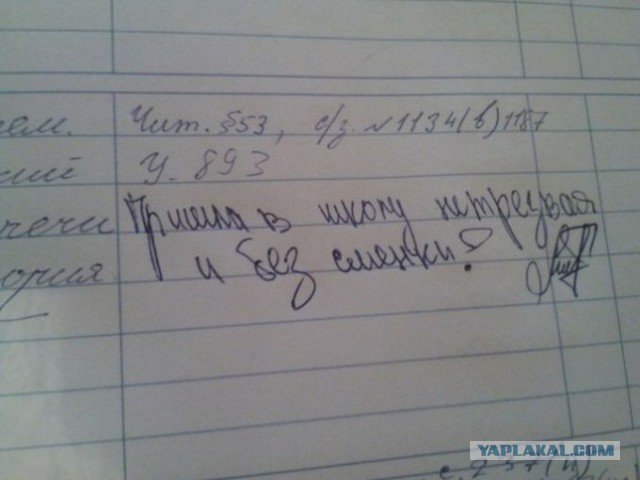 ем. Чит. §53, с/з. №1134(в)1187
кий У. 893
речи Пришла в школу нетрезвая
ория и без сменки!
YAPLAKAL.COM